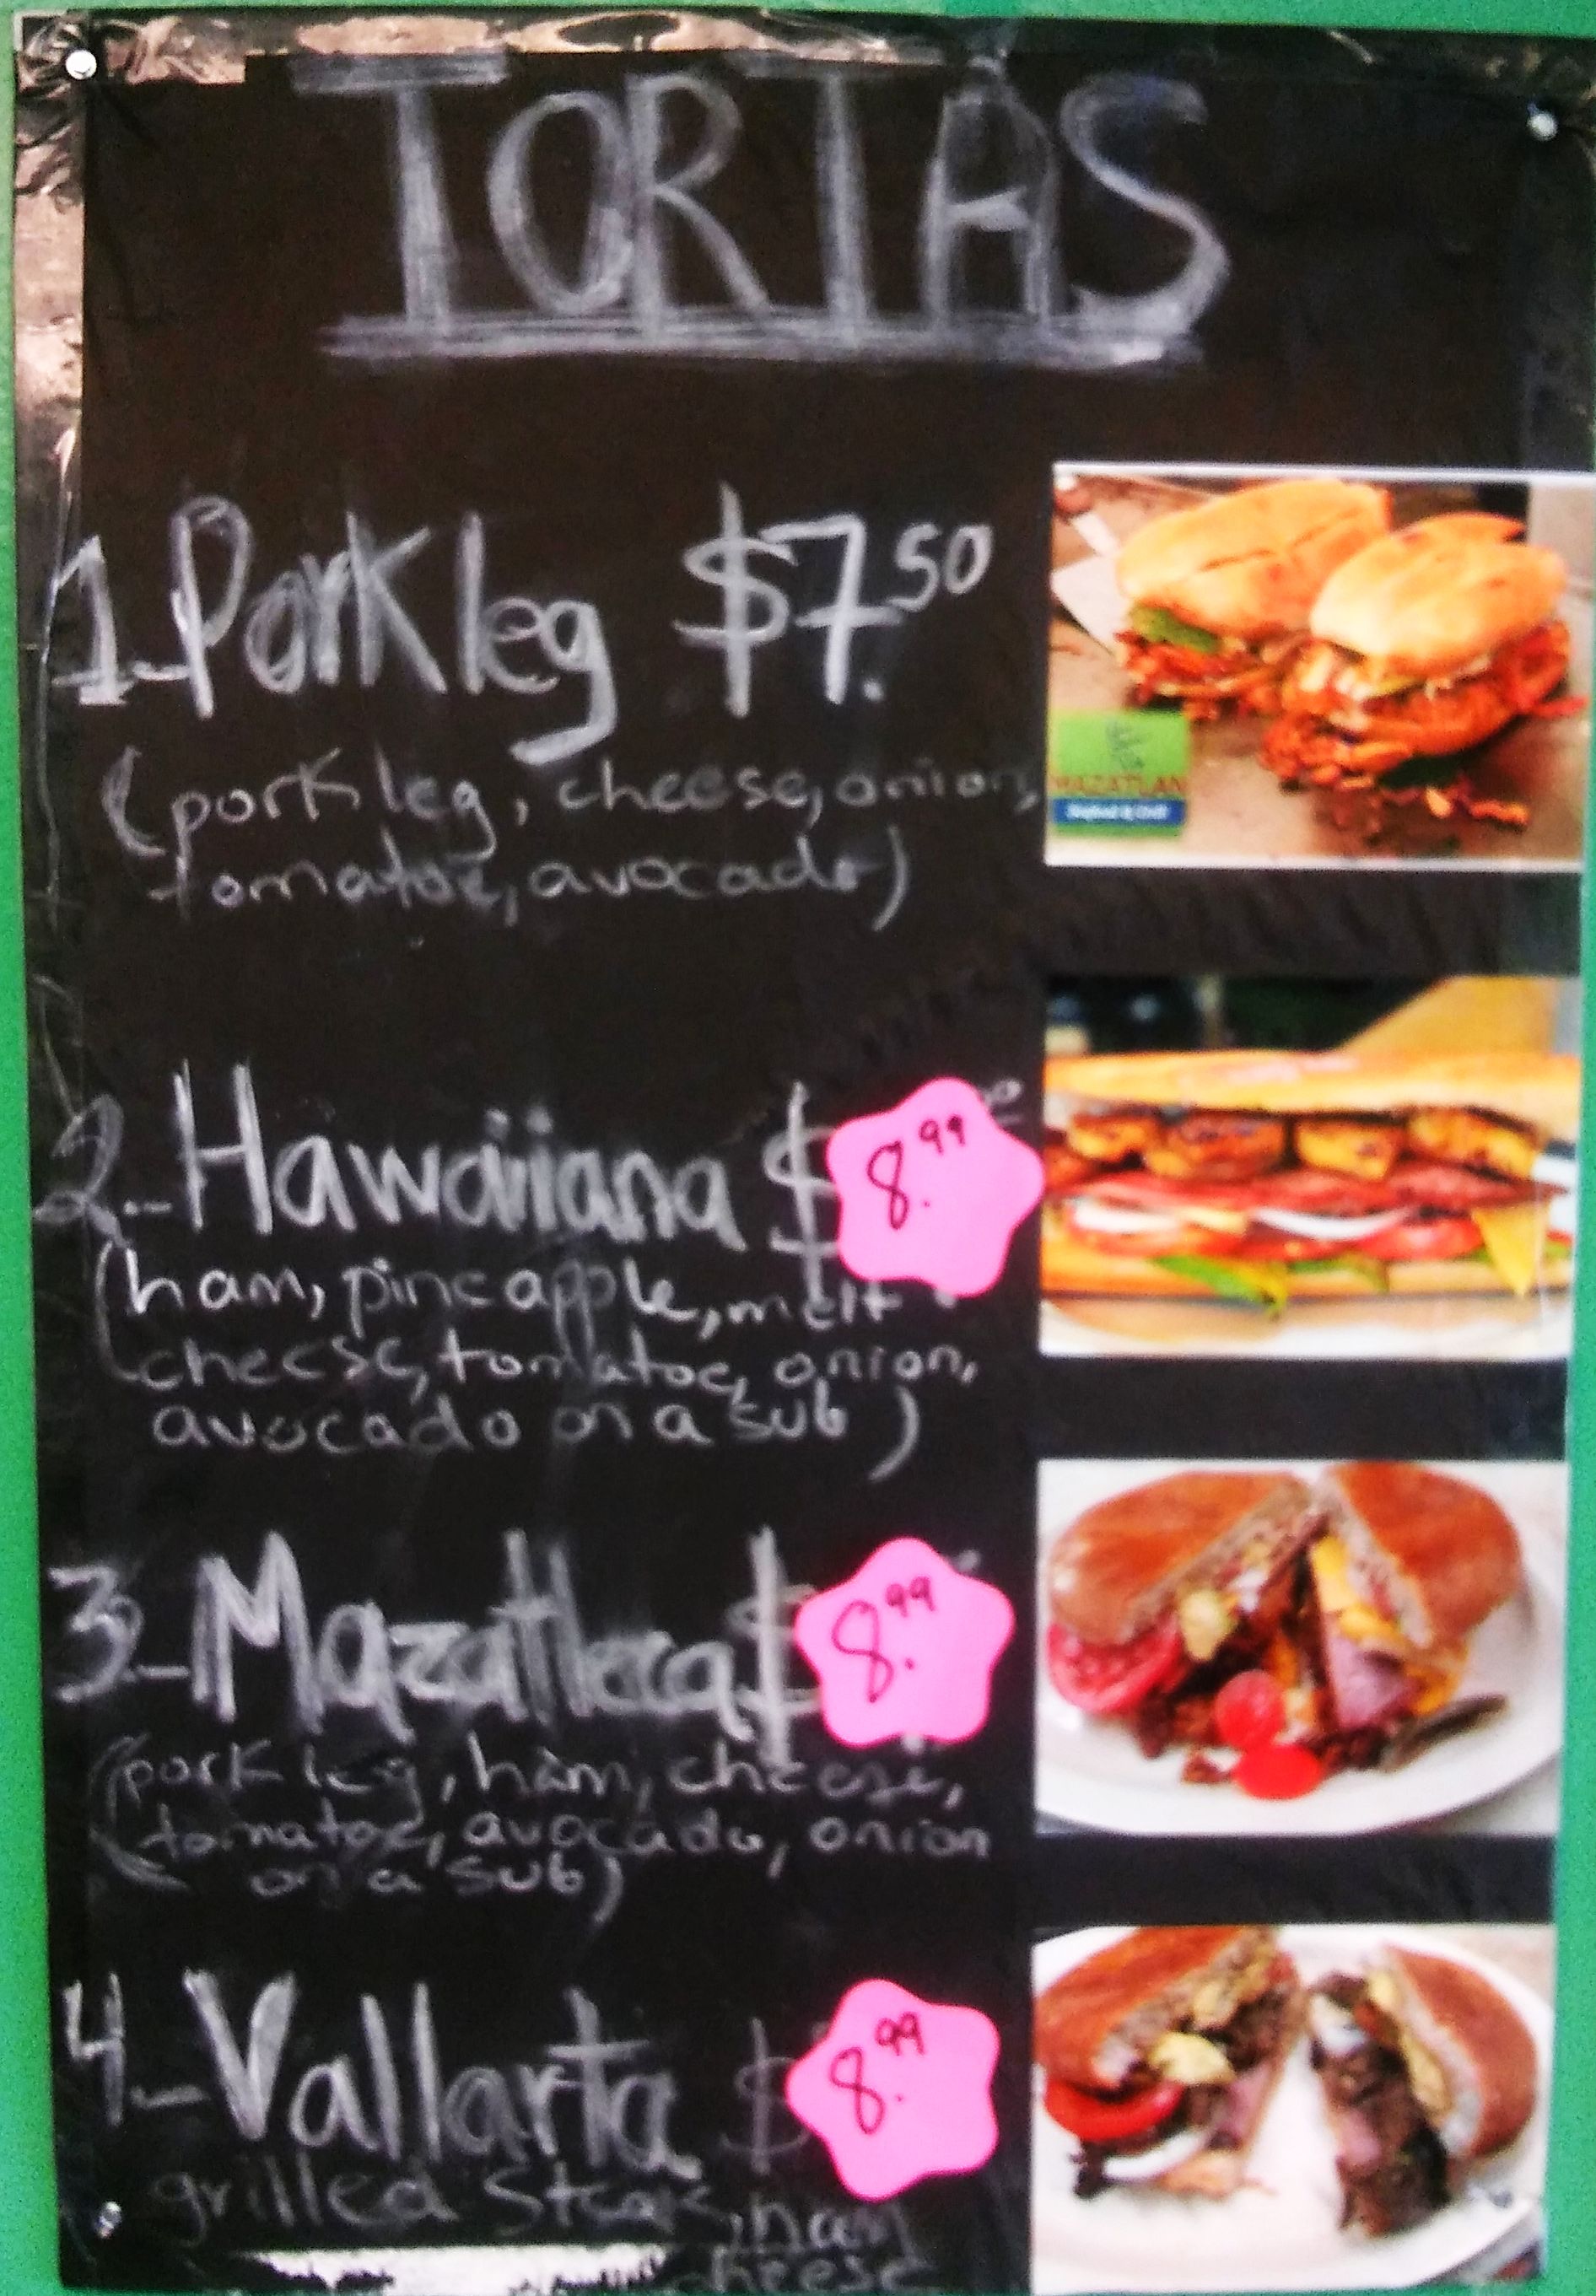 TORTAS
1.-Pork leg $7.50
(pork leg, cheese, onion,
tomatoe, avocado)
MAZATLAN
Seafood & Grill
2.-Hawaiiana $8.99
(ham, pineapple, melt
cheese, tomatoe, onion,
avocado on a sub)
3.-Mazatleca $8.99
(pork leg, ham, cheese,
tomatoe, avocado, onion
on a sub)
4.-Vallarta $8.99
grilled steak, ham
cheese